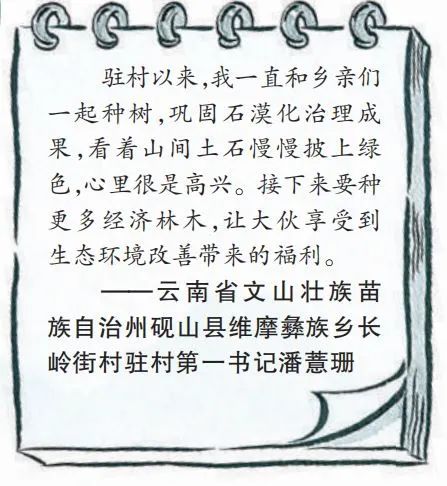 驻村以来,我一直和乡亲们
一起种树,巩固石漠化治理成
果,看着山间土石慢慢披上绿
色,心里很是高兴。接下来要种
更多经济林木,让大伙享受到
生态环境改善带来的福利。
——云南省文山壮族苗
族自治州砚山县维摩彝族乡长
岭街村驻村第一书记潘薏珊